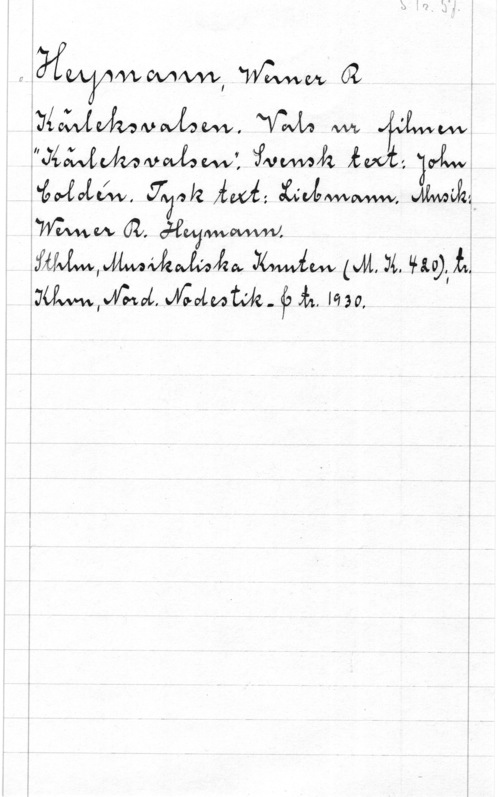 S 12. 57.
Heymann, Werner R
Kärleksvalsen. Vals ur filmen
"Kärleksvalsen". Svensk text: John
Coldén. Tysk text: Liebmann. Musik:
Werner R. Heymann.
Sthlm, Musikaliska Knuten (M. K. 420), tr.
Khvn, Nord. Nodestik- & tr. 1930.